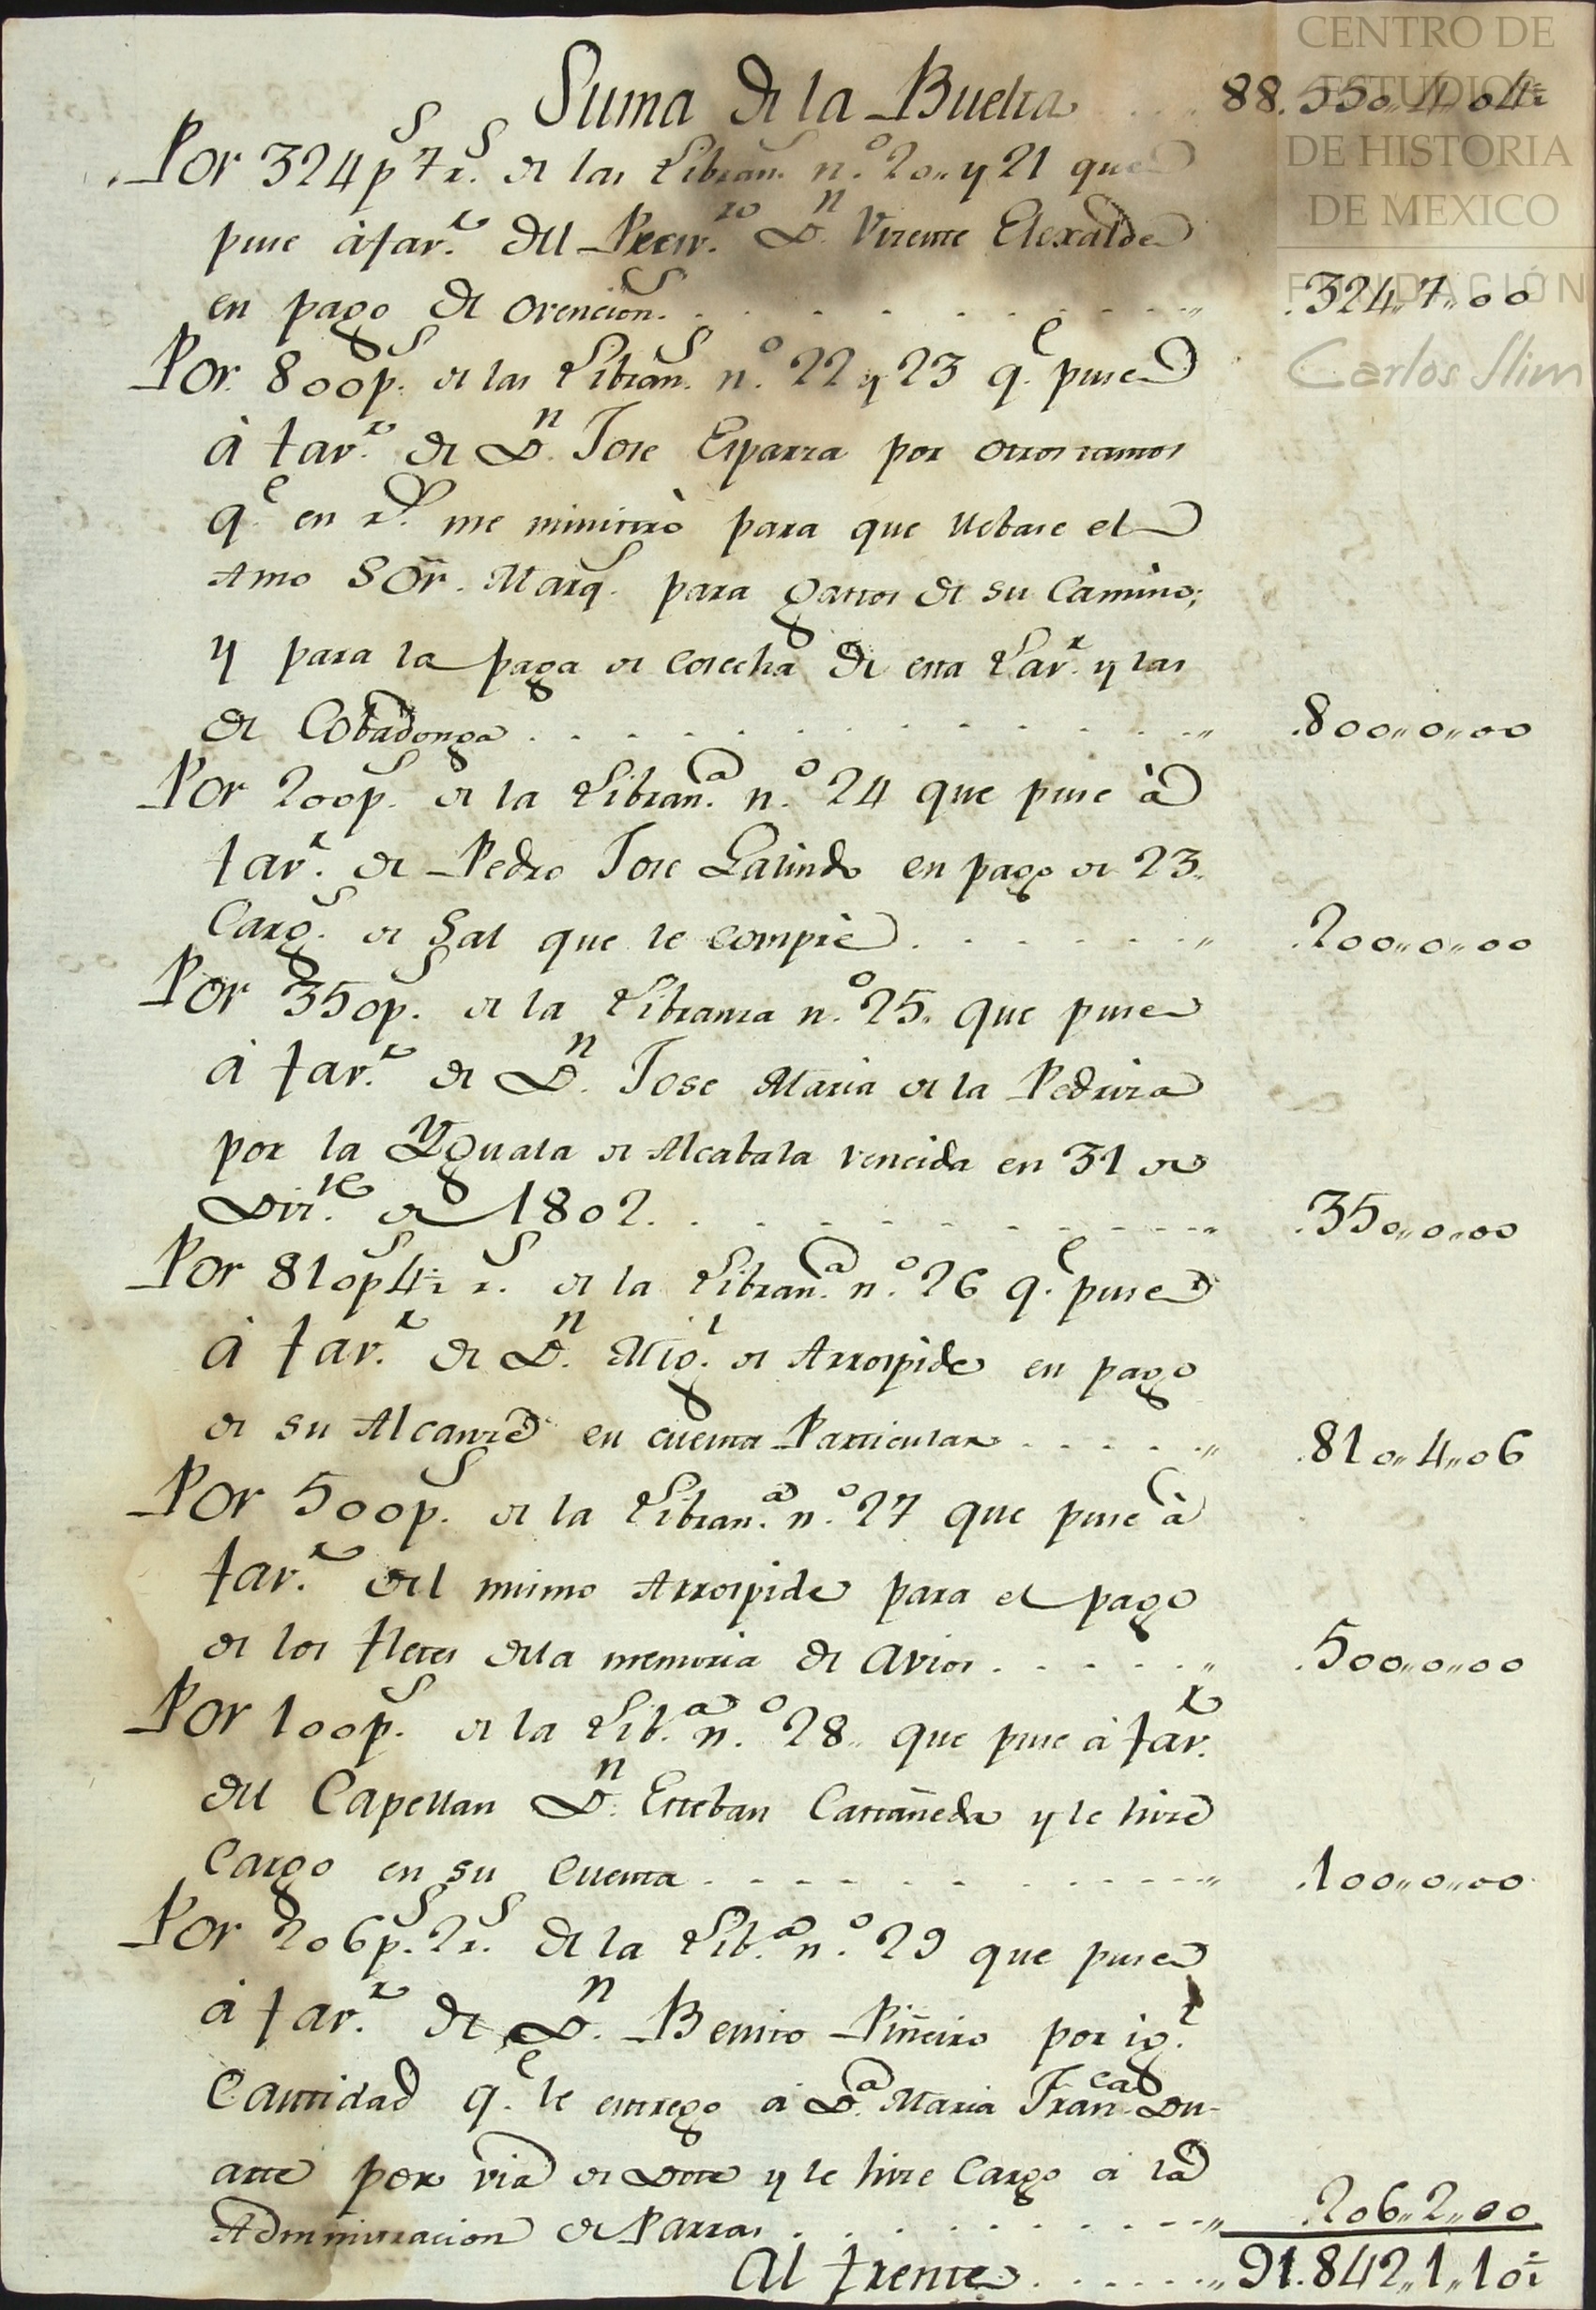 Suma de la Buelta . . . 88.550„4„04½
Por 324 p.s 7 r.s de las Libran.s n.o 20„ y 21 que
puse à fav.r del Recev.ro D.n Vizente Elexalde
en pago de orencion.s . . . . . . . . „ .324„7„00
Por 800 p.s de las Libran.s n.o 22 y 23 q.e puse
à fav.r de D.n Jose Esparza por otros tantos
q.e en r.s me ministrò para que llebase el
Amo Sōr. Marq.s para gastos de su Camino;
y para la paga de cosecha de esta Lav.r y las
de Cobadonga . . . . . . . . . „ .800„0„00
Por 200 p.s de la Libran.a n.o 24 que puse à
fav.r de Pedro Jose Galindo en pago de 23
Carg.s de Sal que le comprè . . . . . . „ .200„0„00
Por 350 p.s de la Libranza n.o 25. que puse
à fav.r de D.n Jose Maria de la Pedriza
por la Yguala de Alcabala vencida en 31 de
Diz.re de 1802. . . . . . . . . . „ .350„0„00
Por 810 p.s 4½ r.s de la Libran.a n.o 26 q.e puse
à fav.r de D.n Mig.l de Arrospide en pago
de su Alcanze en cuenta Particular . . . . „ .810„4„06
Por 500 p.s de la Libran.a n.o 27 que puse à
fav.r del mismo Arrospide para el pago
de los fletes dela memoria de Avios . . . . „ .500„0„00
Por 100 p.s de la Lib.a n.o 28„ que puse à fav.r
del Capellan D.n Esteban Castañeda y le hize
Cargo en su Cuenta . . . . . . . . „ .100„0„00
Por 206 p.s 2 r.s de la Lib.a n.o 29 que puse
à fav.r de D.n Benito Piñeiro por ig.l
Cantidad q.e le entrego à D.a Maria Fran.ca Du-
arte por via de Dote y le hize Cargo à la
Administracion de Parras . . . . . . . „ .206„2„00
Al frente . . . . . . „ 91.842„1„10½
CENTRO DE
ESTUDIOS
DE HISTORIA
DE MEXICO
FUNDACIÓN
Carlos Slim